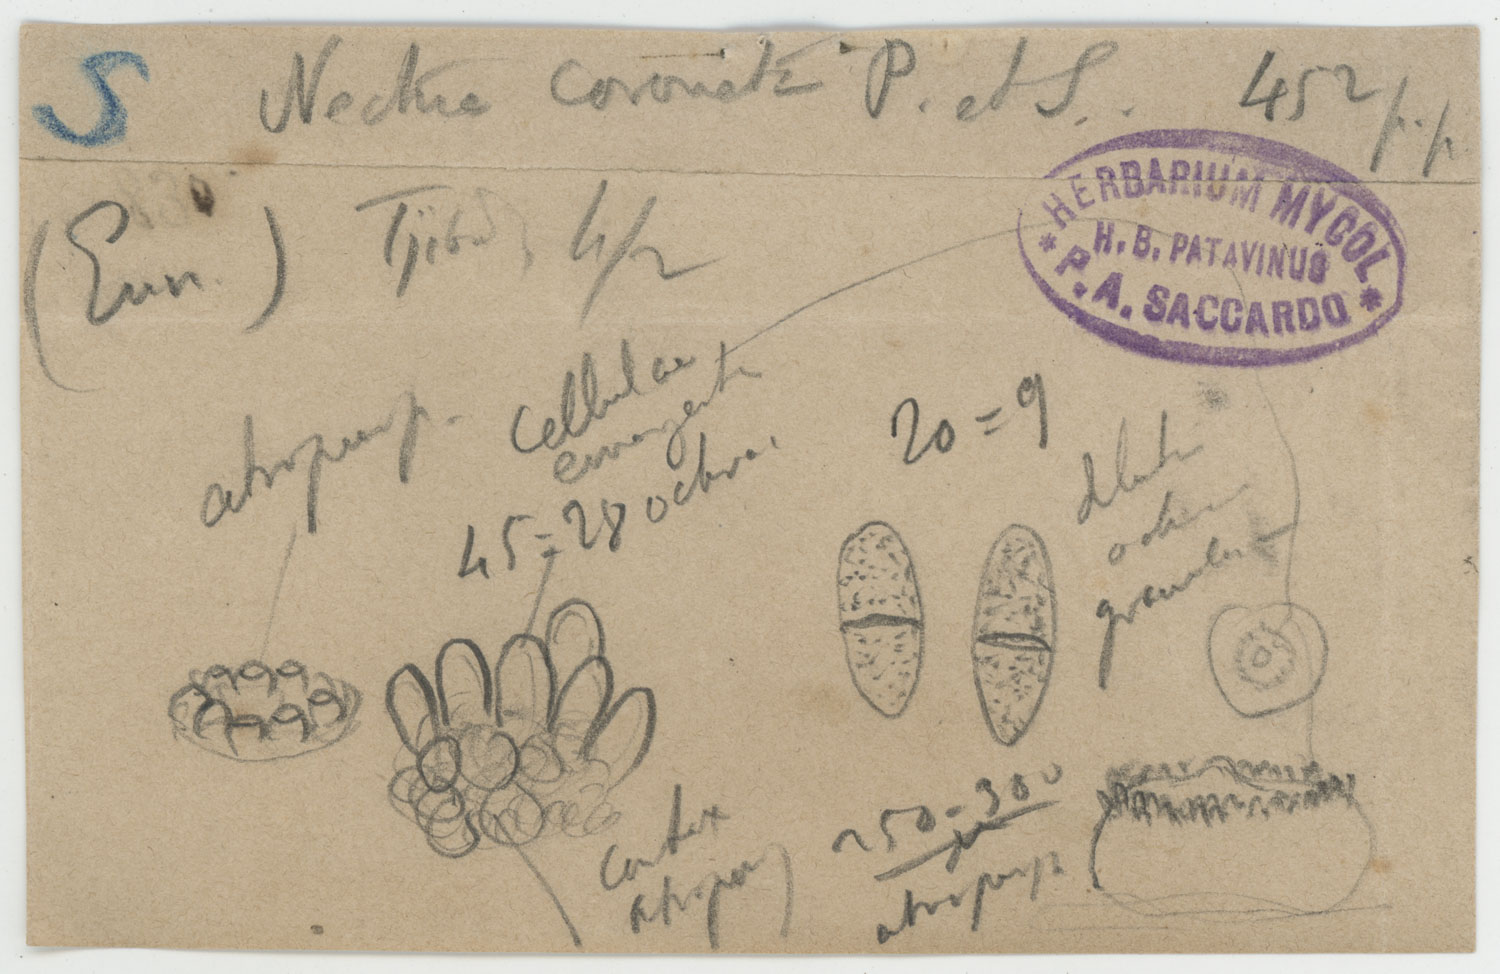 S Nectria coronata P. et S. 452 p.p.
(Eun.) Tjibod, 4/2
HERBARIUM MYCOL
H. B. PATAVINUS
* P. A. SACCARDO *
atropurp.
cellulae
emergent
45=28 ochrac
20=9
dilute
granulos
cortex
atropurp
250-300
atropurp.